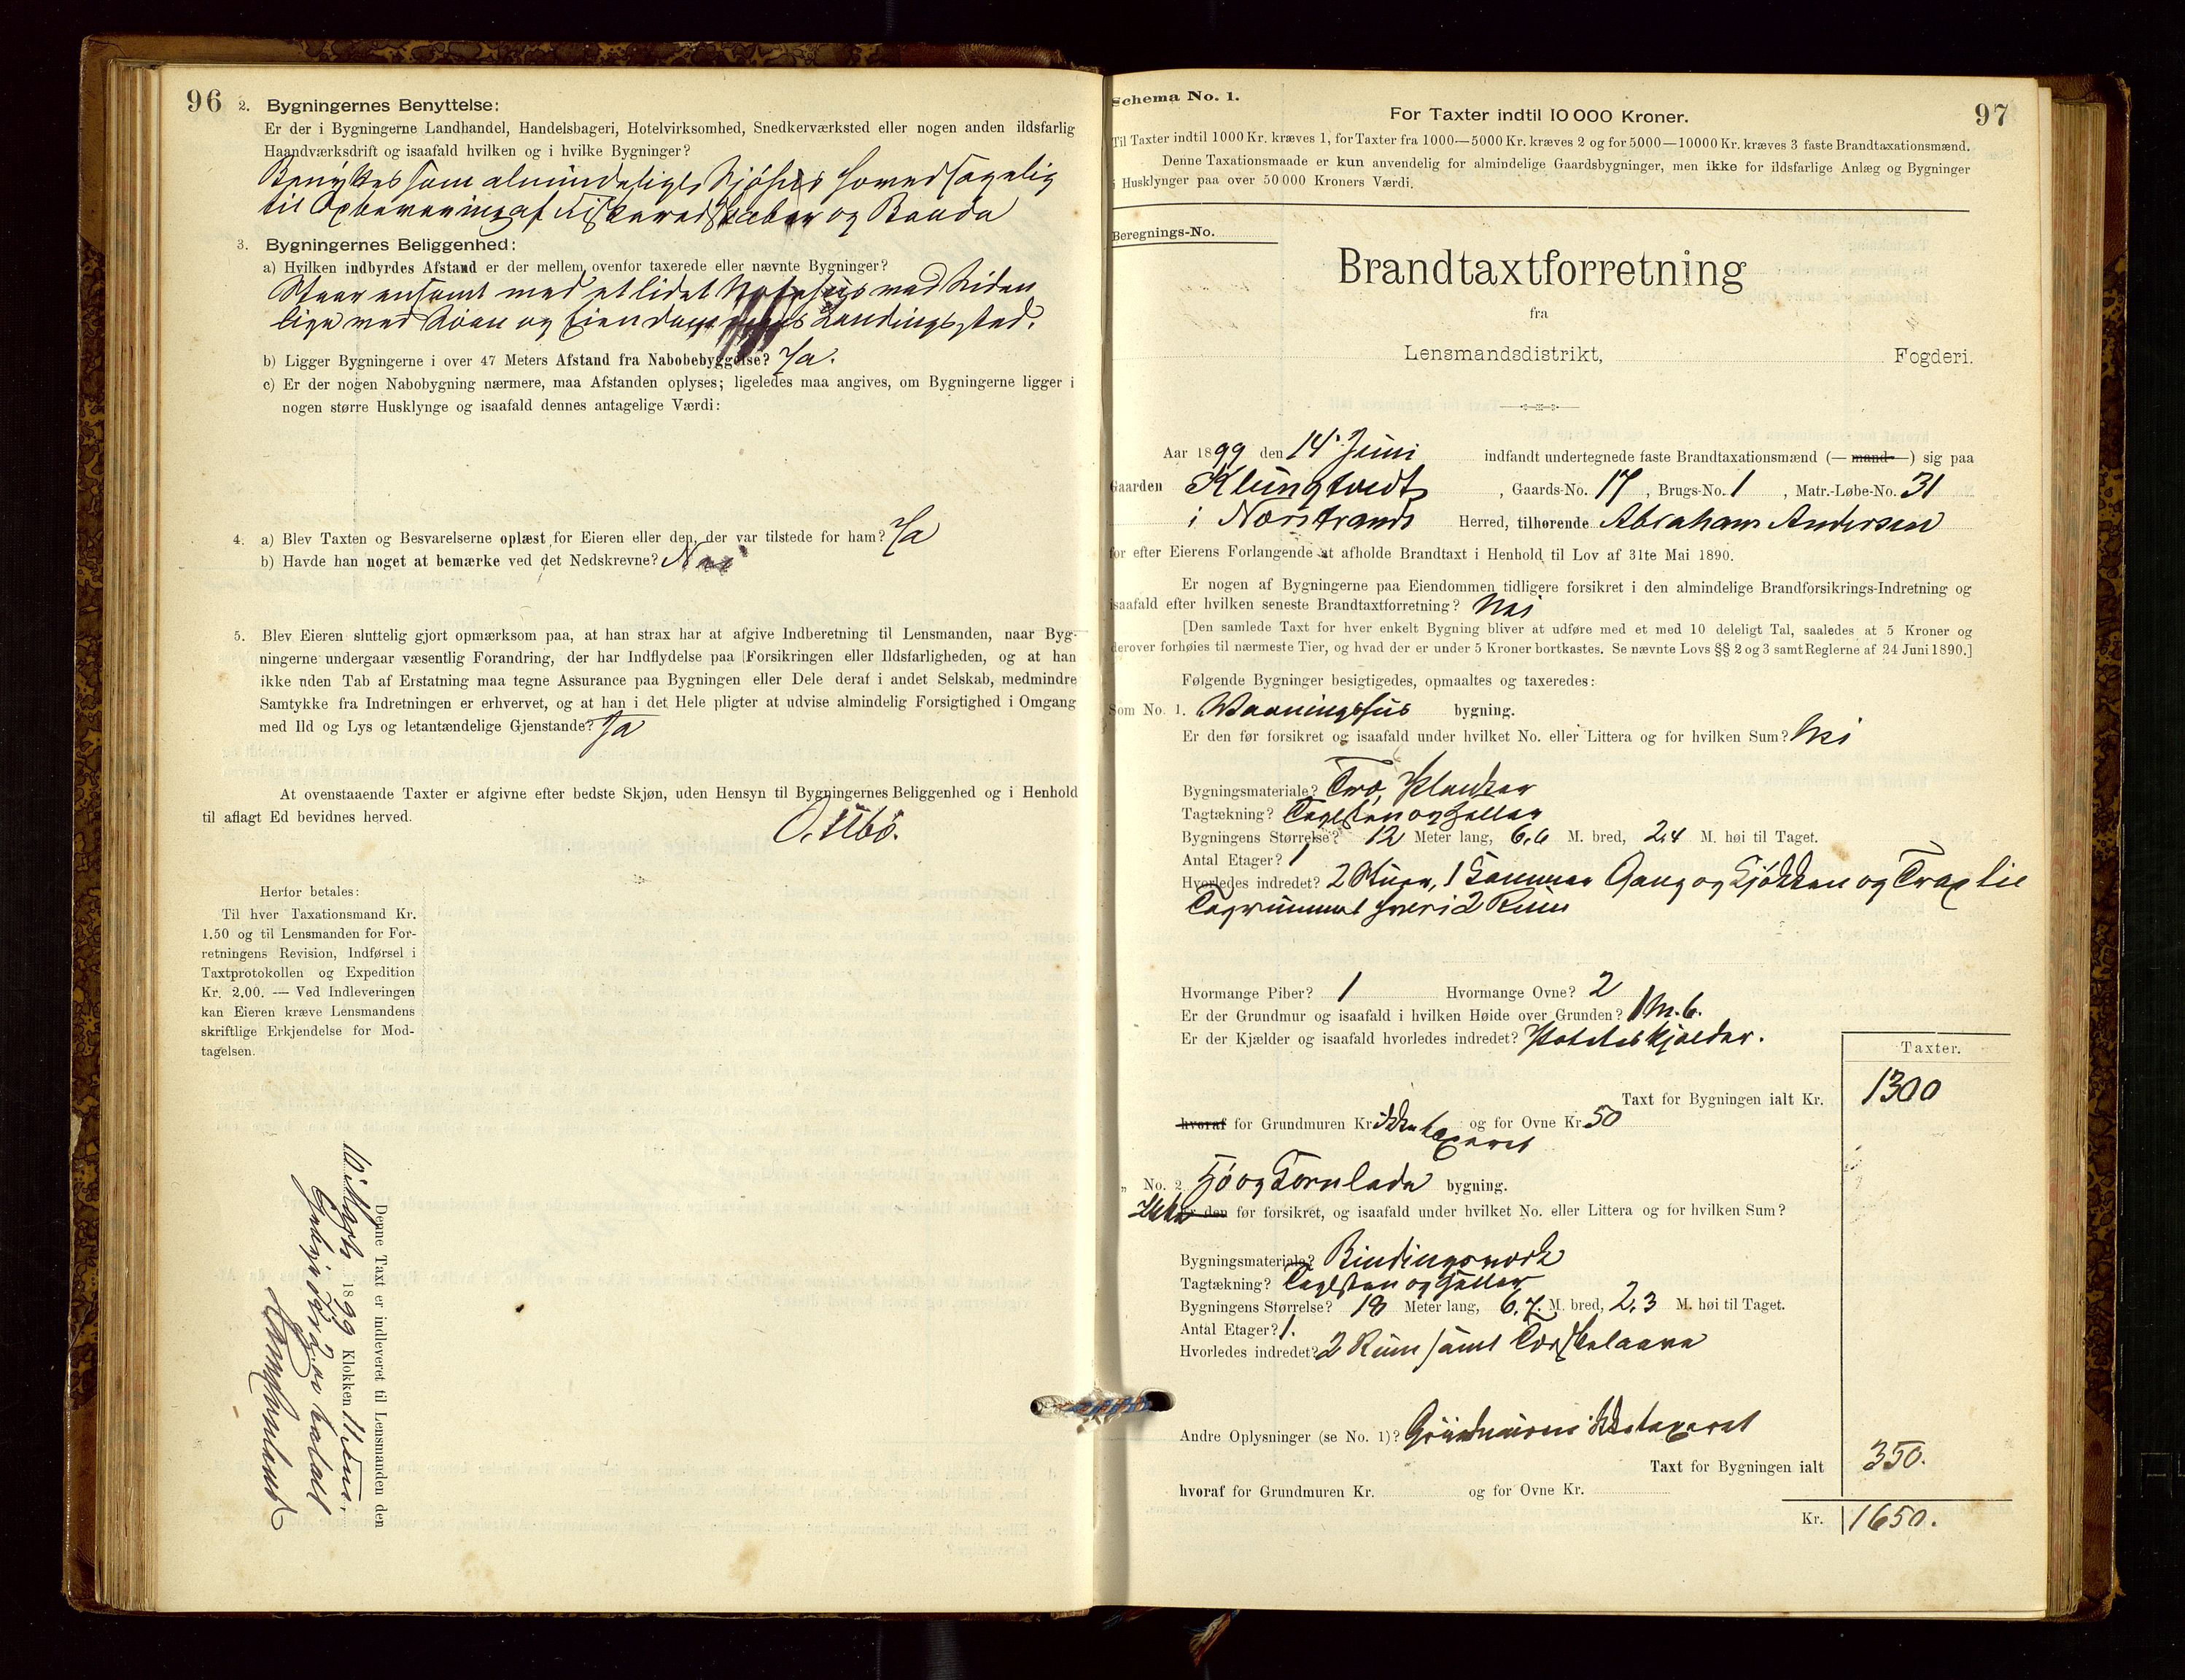 96
2. Bygningernes Benyttelse:
Er der i Bygningerne Landhandel, Handelsbageri, Hotelvirksomhed, Snedkerværksted eller nogen anden ildsfarlig
Haandværksdrift og isaafald hvilken og i hvilke Bygninger?
Benyttes som almindeligt Sjøhus hovedsagelig
til Opbevaring af Fiskeredskaber og Baade
3. Bygningernes Beliggenhed:
a) Hvilken indbyrdes Afstand er der mellem ovenfor taxerede eller nævnte Bygninger?
Staar ensomt med et lidet ved Siden
lige ved Søen og Landingssted.
b) Ligger Bygningerne i over 47 Meters Afstand fra Nabobebyggelse? Ja.
c) Er der nogen Nabobygning nærmere, maa Afstanden oplyses; ligeledes maa angives, om Bygningerne ligger i
nogen større Husklynge og isaafald dennes antagelige Værdi:
4. a) Blev Taxten og Besvarelserne oplæst for Eieren eller den, der var tilstede for ham? Ja
b) Havde han noget at bemærke ved det Nedskrevne? Nei
5. Blev Eieren sluttelig gjort opmærksom paa, at han strax har at afgive Indberetning til Lensmanden, naar Byg-
ningerne undergaar væsentlig Forandring, der har Indflydelse paa Forsikringen eller Ildsfarligheden, og at han
ikke uden Tab af Erstatning maa tegne Assurance paa Bygningen eller Dele deraf i andet Selskab, medmindre
Samtykke fra Indretningen er erhvervet, og at han i det Hele pligter at udvise almindelig Forsigtighed i Omgang
med Ild og Lys og letantændelige Gjenstande? Ja
At ovenstaaende Taxter er afgivne efter bedste Skjøn, uden Hensyn til Bygningernes Beliggenhed og i Henhold
til aflagt Ed bevidnes herved.
O. Ubø.
Herfor betales:
Til hver Taxationsmand Kr.
1.50 og til Lensmanden for For-
retningens Revision, Indførsel i
Taxtprotokollen og Expedition
Kr. 2.00. — Ved Indleveringen
kan Eieren kræve Lensmandens
skriftlige Erkjendelse for Mod-
tagelsen.
Denne Taxt er indleveret til Lensmanden den
1899 Klokken 11
betalt
97
Schema No. 1.
For Taxter indtil 10 000 Kroner.
Til Taxter indtil 1000 Kr. kræves 1, for Taxter fra 1000—5000 Kr. kræves 2 og for 5000—10000 Kr. kræves 3 faste Brandtaxationsmænd.
Denne Taxationsmaade er kun anvendelig for almindelige Gaardsbygninger, men ikke for ildsfarlige Anlæg og Bygninger
i Husklynger paa over 50 000 Kroners Værdi.
Beregnings-No.
Brandtaxtforretning
fra
Lensmandsdistrikt, Fogderi.
Aar 1899 den 14 Juni indfandt undertegnede faste Brandtaxationsmænd (— mand —) sig paa
Gaarden Klungtvedt, Gaards-No. 17, Brugs-No. 1, Matr.-Løbe-No. 31
i Nærstrands Herred, tilhørende Abraham Andersen
for efter Eierens Forlangende at afholde Brandtaxt i Henhold til Lov af 31te Mai 1890.
Er nogen af Bygningerne paa Eiendommen tidligere forsikret i den almindelige Brandforsikrings-Indretning og
isaafald efter hvilken seneste Brandtaxtforretning? Nei
[Den samlede Taxt for hver enkelt Bygning bliver at udføre med et med 10 deleligt Tal, saaledes at 5 Kroner og
derover forhøies til nærmeste Tier, og hvad der er under 5 Kroner bortkastes. Se nævnte Lovs §§ 2 og 3 samt Reglerne af 24 Juni 1890.]
Følgende Bygninger besigtigedes, opmaaltes og taxeredes:
Som No. 1. Vaaningshus bygning.
Er den før forsikret og isaafald under hvilket No. eller Littera og for hvilken Sum? Nei
Bygningsmateriale? Træ, Planker
Tagtækning? Taglsten og Heller
Bygningens Størrelse? 12 Meter lang, 6,6 M. bred, 2,4 M. høi til Taget.
Antal Etager? 1
Hvorledes indredet? 2 Stuer, 1 Kammer Gang og Kjøkken og Trap til
Tagrummet hvori 2 Rum
Hvormange Piber? 1 Hvormange Ovne? 2
Er der Grundmur og isaafald i hvilken Høide over Grunden? 1 M. 6.
Er der Kjælder og isaafald hvorledes indredet? Poteteskjælder.
Taxter.
Taxt for Bygningen ialt Kr. 1300
hvoraf for Grundmuren Kr. ikke taxeret og for Ovne Kr. 50
" No. 2. Hø og Kornlade bygning.
Ikke er den før forsikret, og isaafald under hvilket No. eller Littera og for hvilken Sum?
Bygningsmateriale? Bindingsværk
Tagtækning? Taglsten og Heller
Bygningens Størrelse? 18 Meter lang, 6,7. M. bred, 2,3 M. høi til Taget.
Antal Etager? 1.
Hvorledes indredet? 2 Rum samt Tærskelaave
Andre Oplysninger (se No. 1)? Grundmuren ikke taxeret
Taxt for Bygningen ialt 350.
hvoraf for Grundmuren Kr. og for Ovne Kr.
Kr. 1650.